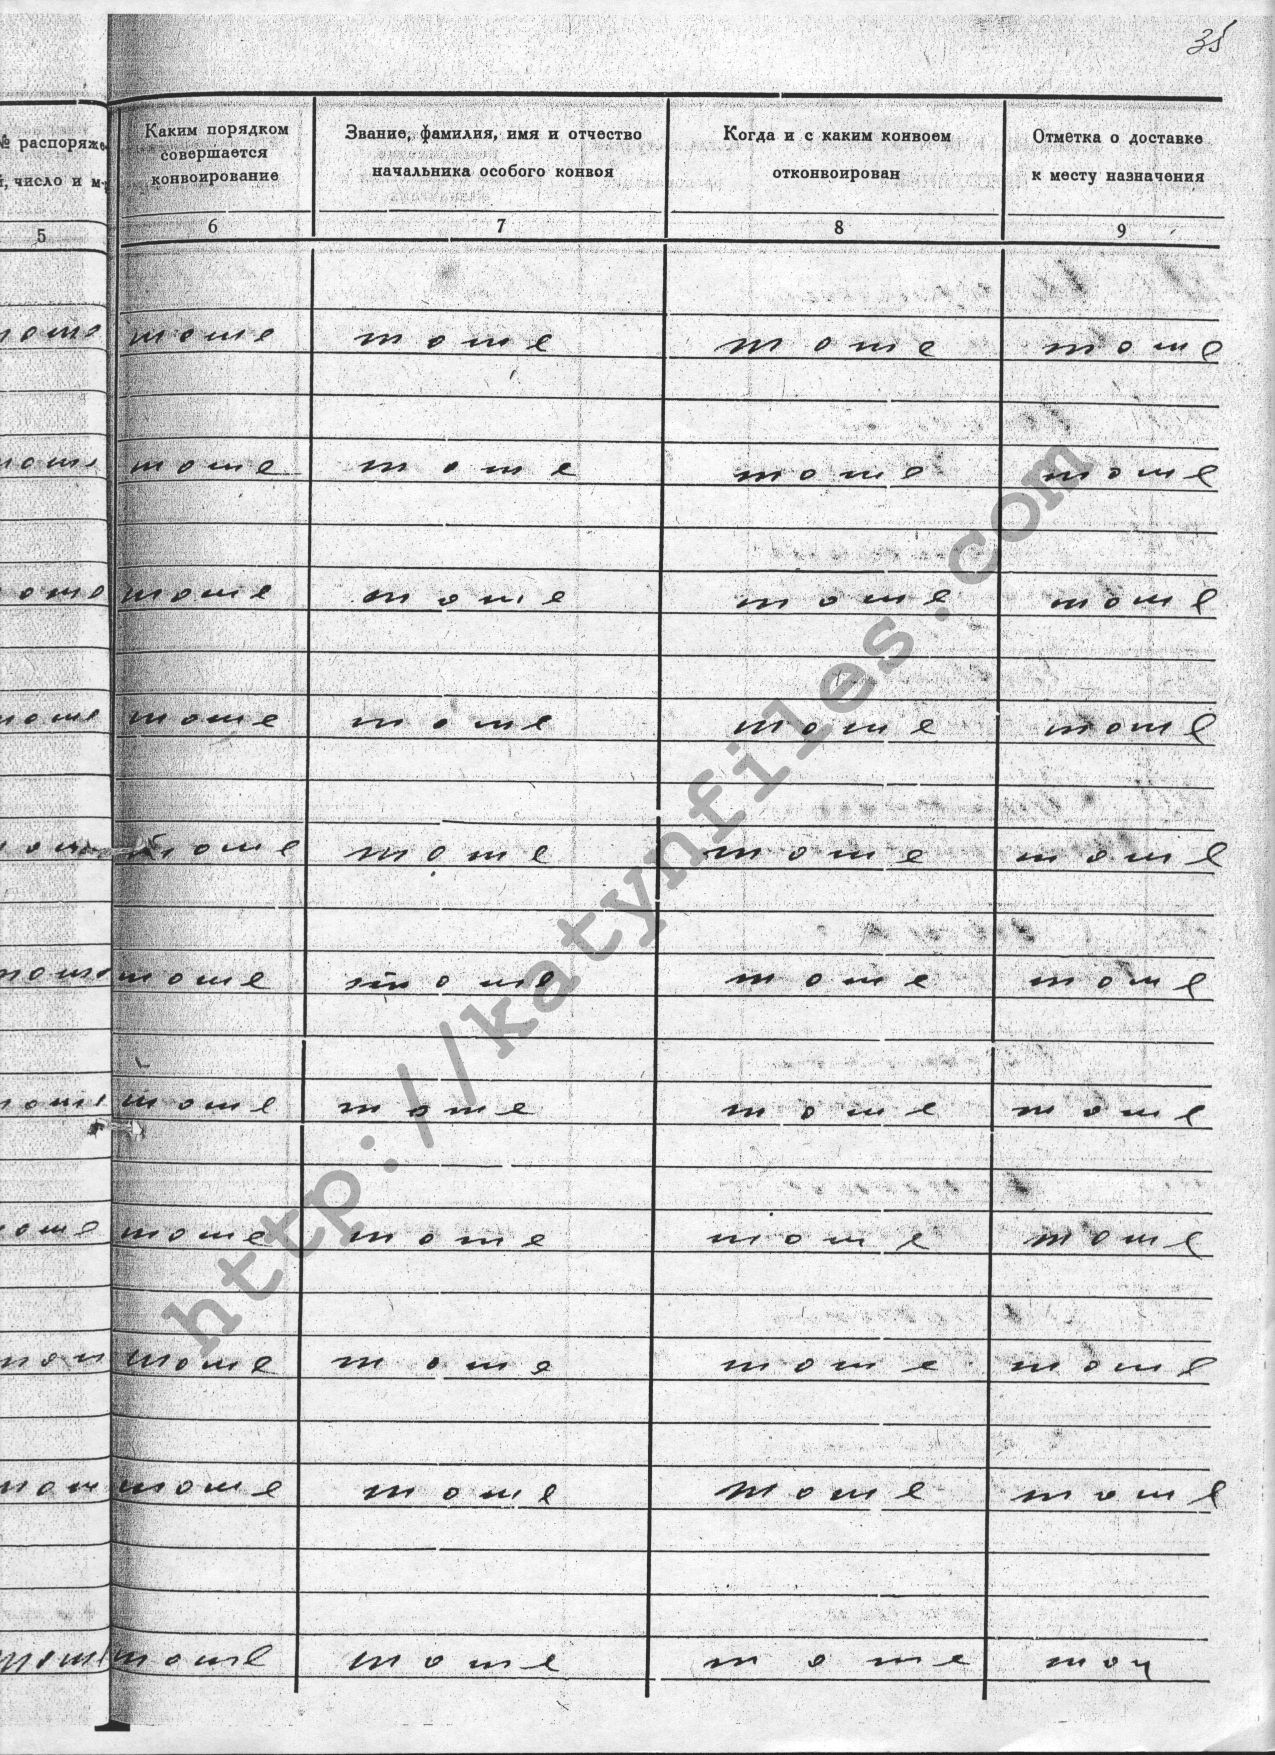 35
№ распоряже
й, число и м
Каким порядком
совершается
конвоирование
Звание, фамилия, имя и отчество
начальника особого конвоя
Когда и с каким конвоем
отконвоирован
Отметка о доставке
к месту назначения
5 6 7 8 9
тоже тоже тоже тоже тоже
тоже тоже тоже тоже тоже
тоже тоже тоже тоже тоже
тоже тоже тоже тоже тоже
тоже тоже тоже тоже тоже
тоже тоже тоже тоже тоже
тоже тоже тоже тоже тоже
тоже тоже тоже тоже тоже
тож тоже тоже тоже тоже
тож тоже тоже тоже тоже
тоже тоже тоже тоже точ
http://katynfiles.com